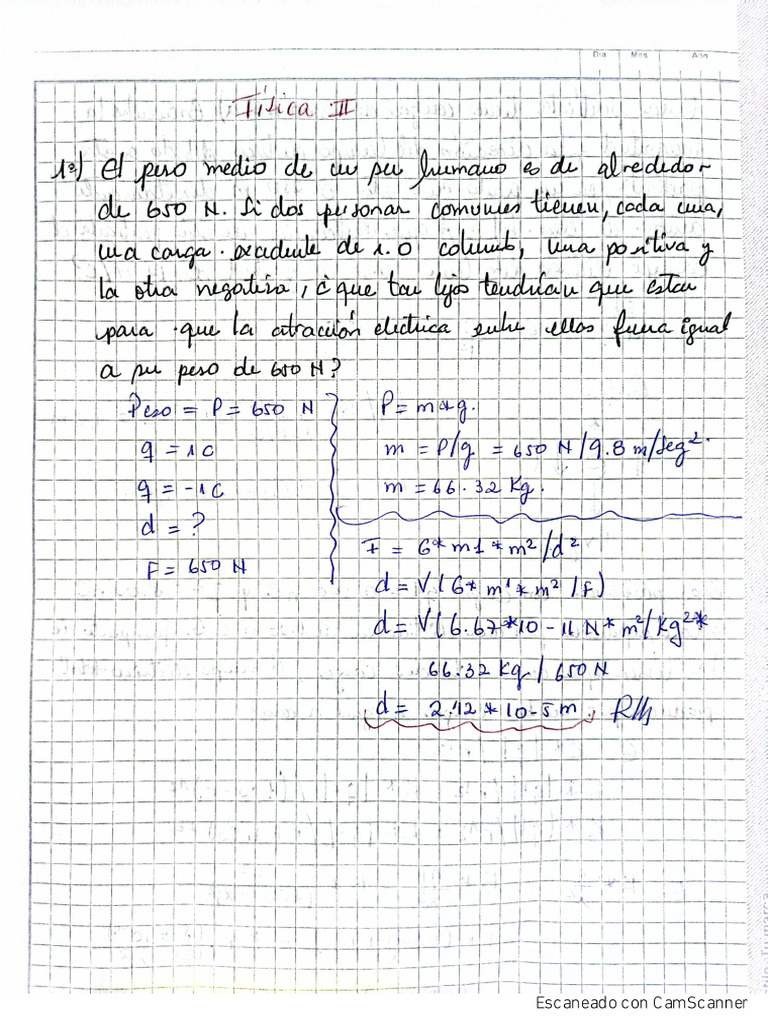 Dia Mes Año
Física II
1º) El peso medio de un ser humano es de alrededor
de 650 N. Si dos personas comunes tienen, cada una,
una carga excedente de 1.0 columb, una positiva y
la otra negativa, ¿que tan lejos tendrían que estar
para que la atracción electrica entre ellos fuera igual
a su peso de 650 N?
Peso = P = 650 N
q = 1 C
q = -1 C
d = ?
F = 650 N
P = m*g.
m = P/g = 650 N/9.8 m/seg².
m = 66.32 Kg.
F = G* m1 * m²/d²
d = √(G* m¹ * m² /f)
d = √(6.67*10 - 11 N* m²/Kg²*
66.32 Kg / 650 N
d = 2.12 * 10-5 m.
Escaneado con CamScanner